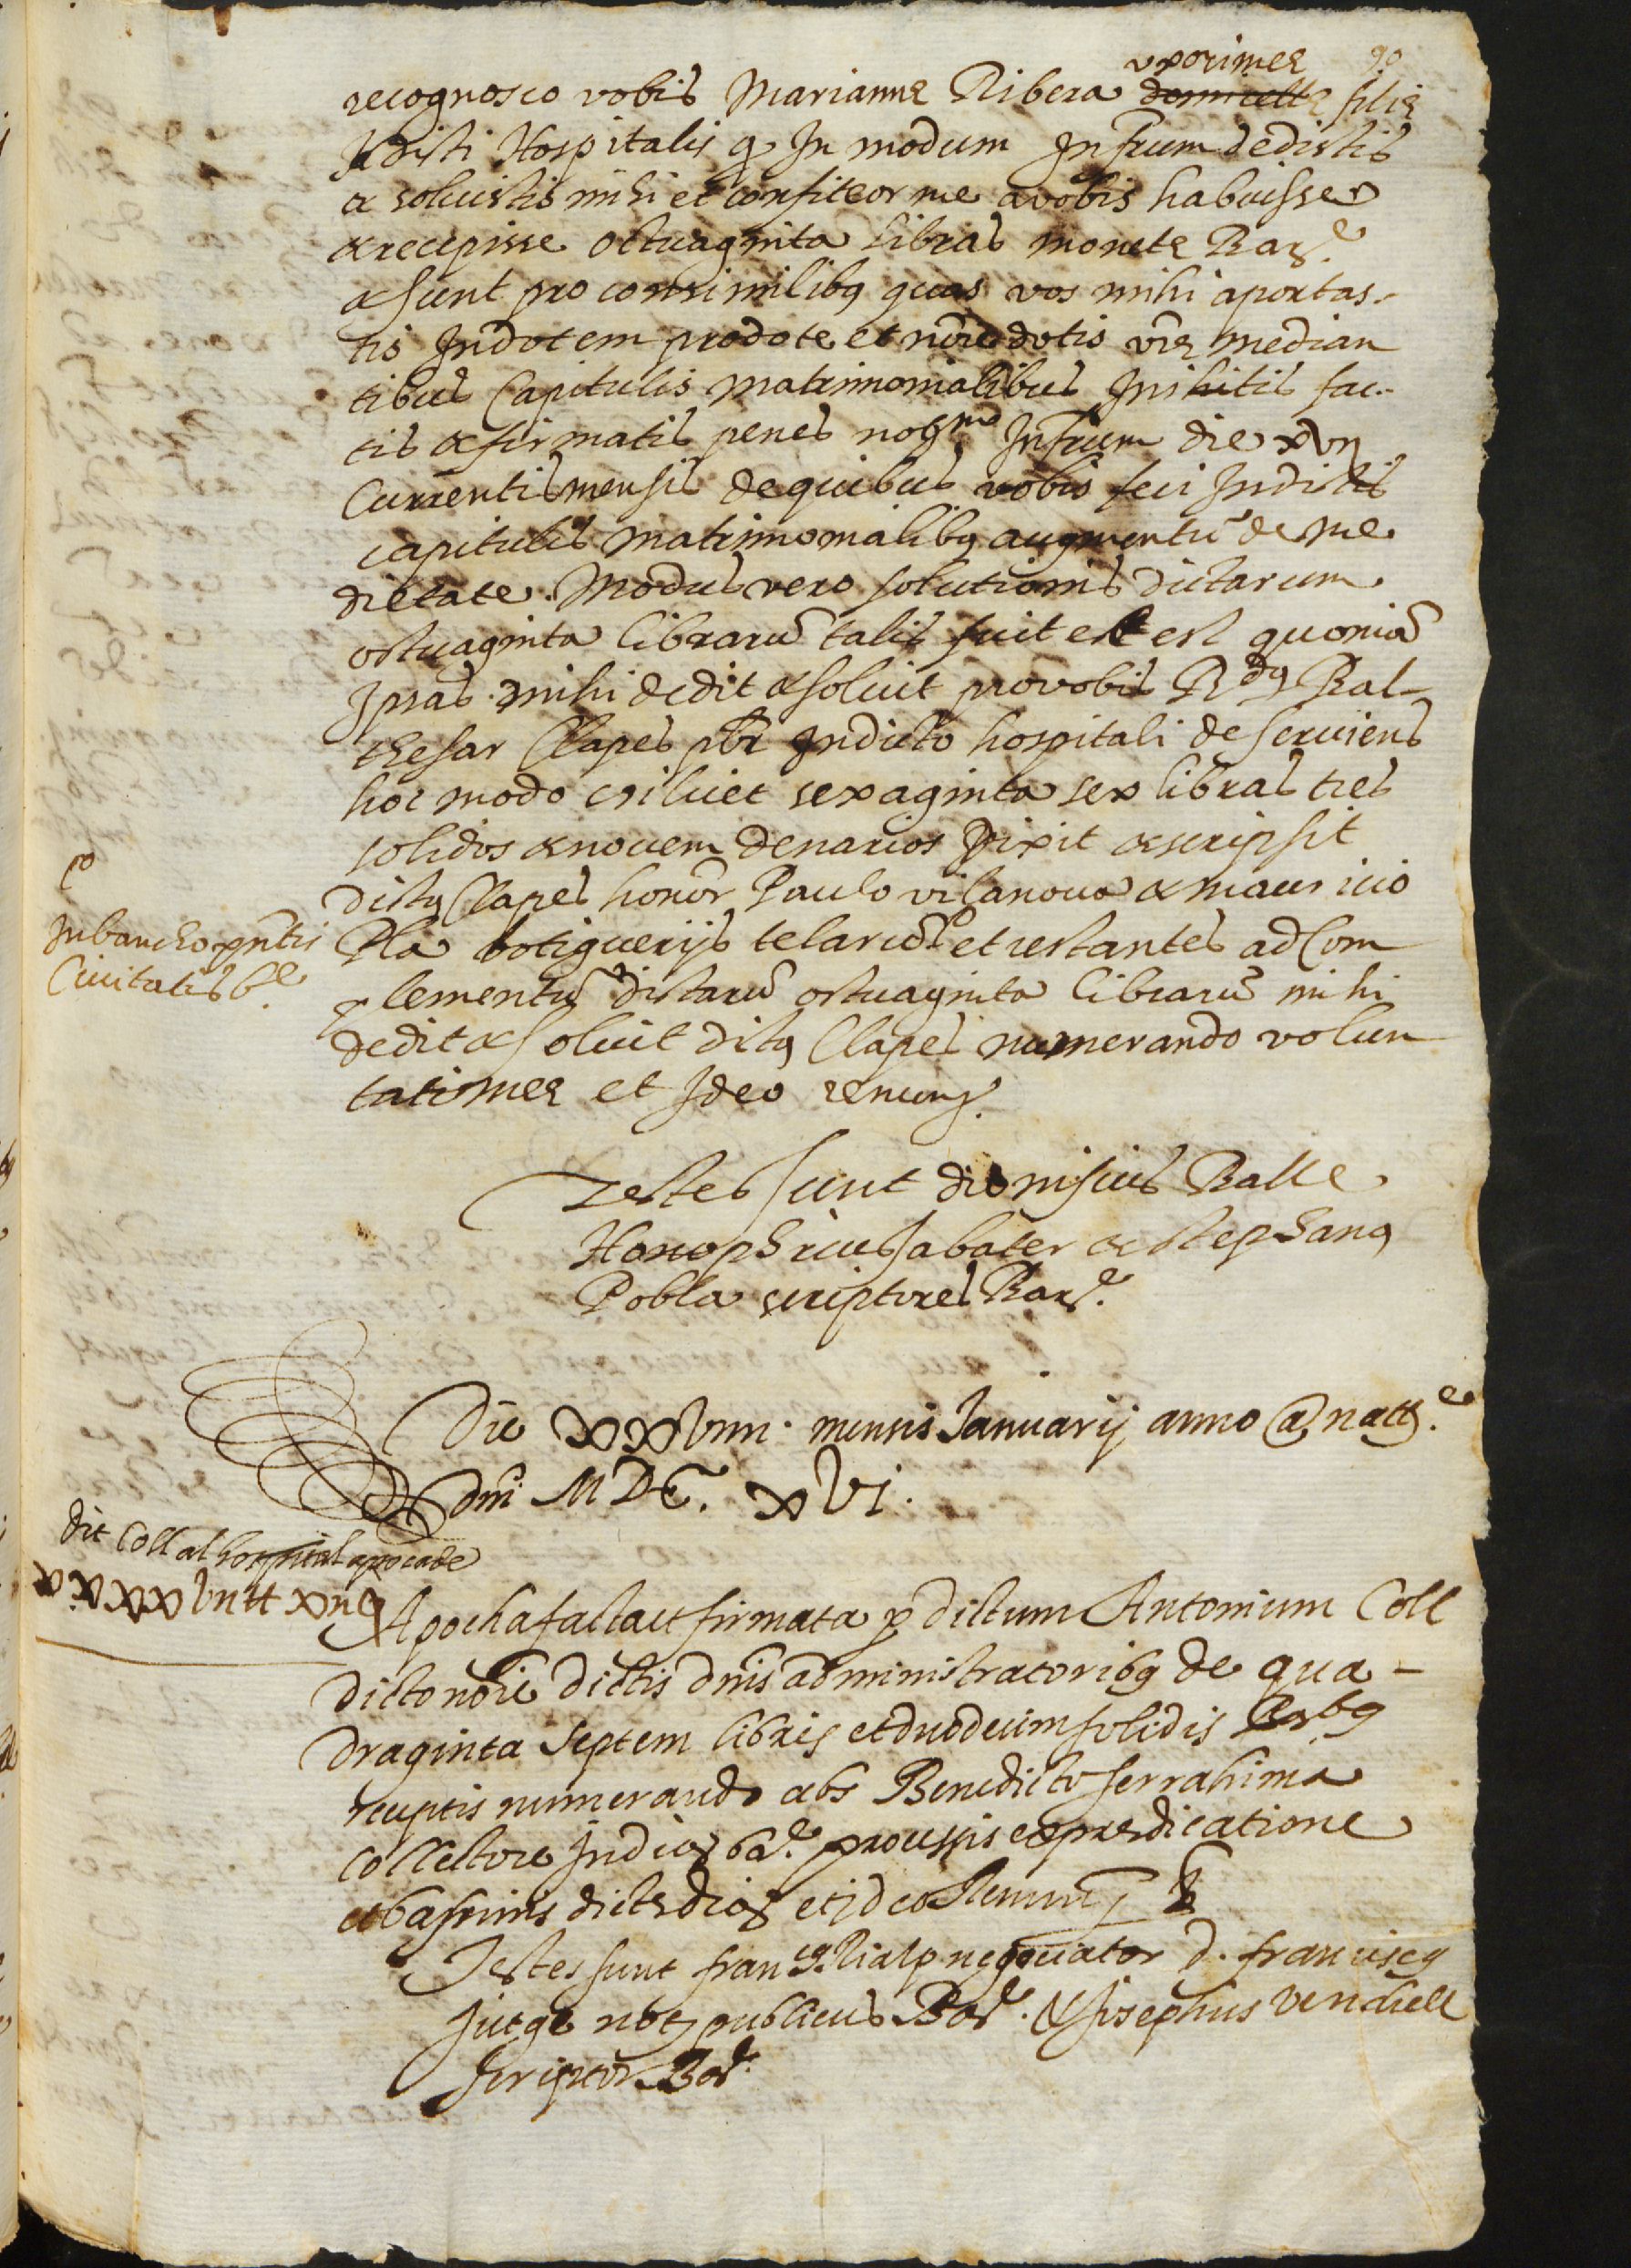 90
uxori meę
recognosco vobis Mariannę Ribera domicellę filię
dicti Hospitalis q̄ In modum Infrum dedistis
& solvistis mihi et confiteor me a vobis habuisse
& recepisse octuaginta libras monetę Barᵉ.
& sunt pro consimilibꝰ quas vos mihi aportas-
tis In dotem pro dote et noīe dotis vr̄ę median
tibus Capitulis Matrimonialibus Inhitis fac-
tis & firmatis penes notᵐ Infrum die xvij
Currentis mensis de quibus vobis feci In dictis
capitulis matrimonialibꝰ augmentū de me
dietate. Modus vero solutionis dictarum
octuaginta librarū talis fuit et est quoniā
Ipsas mihi dedit & soluit pro vobis Rᵈꝰ Bal-
thesar Clapes pbr̄ In dicto hospitali deserviens
hoc modo scilicet sexaginta sex libras tres
solidos & novem denarios Dixit & scripsit
dictꝰ Clapes honor̄ Paulo vilanova & mauricio
Pla botiguerijs telarū et restantes ad Com
plementū dictarū octuaginta librarū mihi
dedit & soluit dictꝰ Clapes numerando volun
tati meę et Ideo renunꝭ.
In bancho pn̄tis
Civitatis Bᵉ.
Testes sunt dionisius Balle
Honophrius sabater & stephanꝰ
Pobla scriptores Barᵉ.
Die xxviiii. mensis Januarij anno a natᵉ.
dn̄i MDC. xvi.
dit Coll al hospital apoca de
xxxxvii ℔ xii ꝭ
Apocha facta et firmata p̱ dictum Antonium Coll
dicto noīe dictis dn̄is administratoribꝰ de qua-
draginta septem libris et duodecim solidis Barᵇꝰ
receptis numerando abs Benedicto serrahima
collectore In dioꝭ Barᵉ. processis ex predicatione
et bassinis dictę dioꝭ et ideo Renunꝭ
Testes sunt franꝰ. Rialp negociator d. franciscꝰ
Jutge notꝭ publicus Barᵉ. & Josephus Vendrell
scriptor Barᵉ.